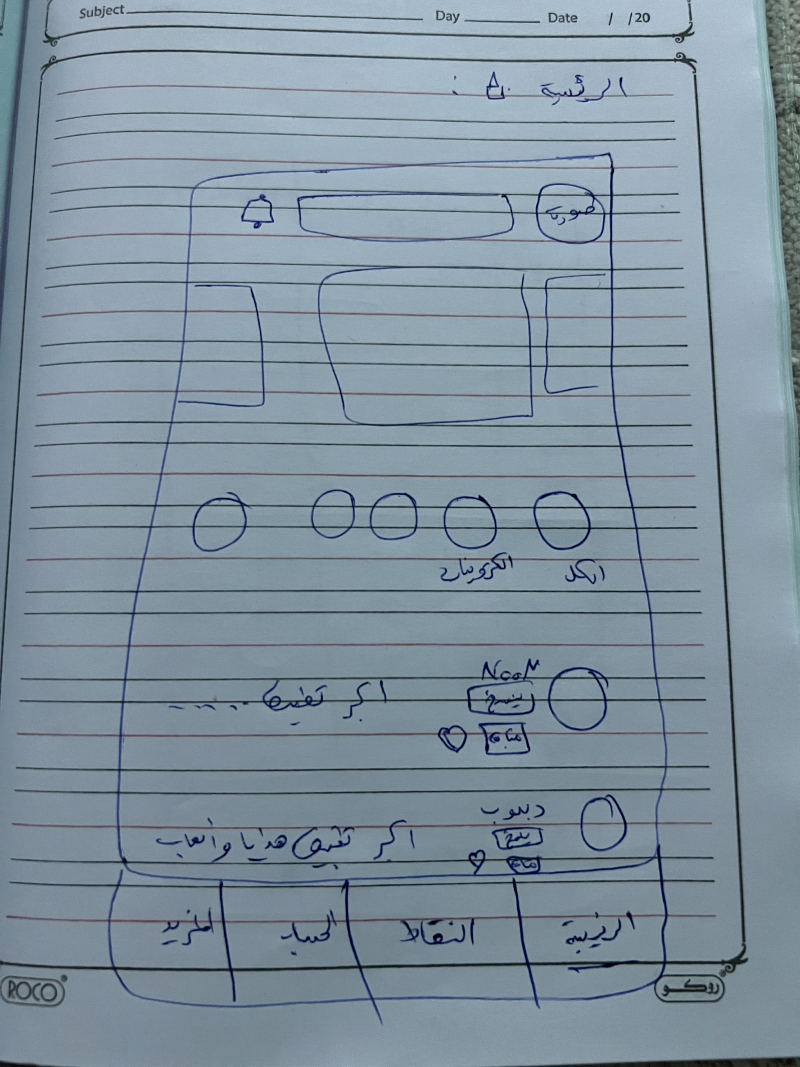 Subject Day Date / /20
الرئيسية :
صورة
الكل
الكوبونات
NooN
ينسخ
متابع
اكبر تطبيق .....
دبدوب
ينسخ
متابع
اكبر تطبيق هدايا وألعاب
الرئيسية
النقاط
الحساب
المزيد
ROCO
روكو